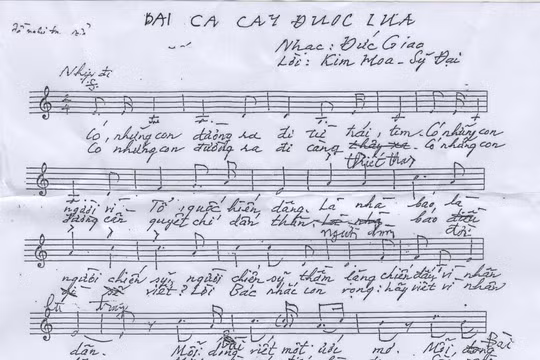 BÀI CA CÂY ĐUỐC LỬA
Nhạc: Đức Giao
Lời: Kim Hoa - Sỹ Đại
Nhịp đi
Có những con đường ra đi từ trái tim. Có những con
Có những con đường ra đi càng thấy xa Có những con
thiết tha
người vì Tổ quốc hiến dâng. Là nhà báo, là
đường cần quyết chí dấn thân. báo
người làm đời
người chiến sỹ, người chiến sỹ thầm lặng chiến đấu vì nhân
viết? Lời Bác nhắc còn vọng: hãy viết vì nhân
dân. Mỗi dòng viết một ước mơ. Mỗi dòng
Bài Bài